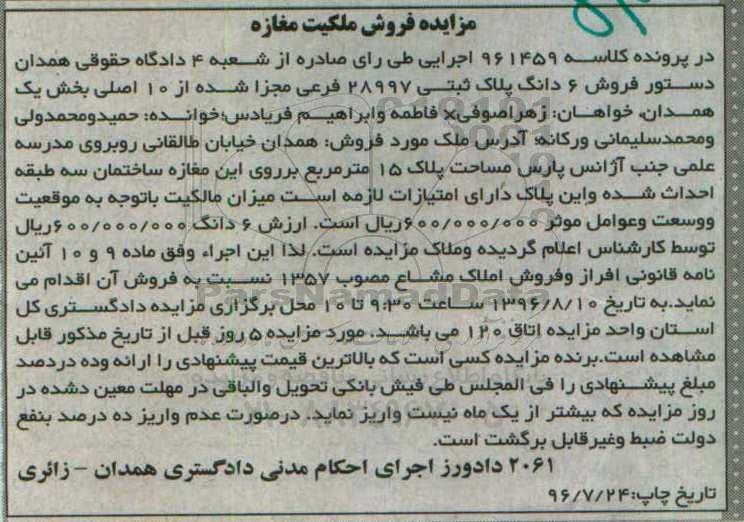 مزایده فروش ملکیت مغازه
در پرونده کلاسه ۹۶۱۴۵۹ اجرایی طی رای صادره از شعبه ۴ دادگاه حقوقی همدان
دستور فروش ۶ دانگ پلاک ثبتی ۲۸۹۹۷ فرعی مجزا شده از ۱۰ اصلی بخش یک
همدان، خواهان: زهراصوفی× فاطمه وابراهیم فریادس؛خوانده: حمیدومحمدولی
ومحمدسلیمانی ورکانه؛ آدرس ملک مورد فروش: همدان خیابان طالقانی روبروی مدرسه
علمی جنب آژانس پارس مساحت پلاک ۱۵ مترمربع برروی این مغازه ساختمان سه طبقه
احداث شده واین پلاک دارای امتیازات لازمه است میزان مالکیت باتوجه به موقعیت
ووسعت وعوامل موثر ۶۰۰/۰۰۰/۰۰۰ریال است. ارزش ۶ دانگ ۶۰۰/۰۰۰/۰۰۰ریال
توسط کارشناس اعلام گردیده وملاک مزایده است. لذا این اجراء وفق ماده ۹ و ۱۰ آئین
نامه قانونی افراز وفروش املاک مشاع مصوب ۱۳۵۷ نسبت به فروش آن اقدام می
نماید.به تاریخ ۱۳۹۶/۸/۱۰ ساعت ۹:۳۰ تا ۱۰ محل برگزاری مزایده دادگستری کل
استان واحد مزایده اتاق ۱۲۰ می باشد. مورد مزایده ۵ روز قبل از تاریخ مذکور قابل
مشاهده است.برنده مزایده کسی است که بالاترین قیمت پیشنهادی را ارائه وده دردصد
مبلغ پیشنهادی را فی المجلس طی فیش بانکی تحویل والباقی در مهلت معین دشده در
روز مزایده که بیشتر از یک ماه نیست واریز نماید. درصورت عدم واریز ده درصد بنفع
دولت ضبط وغیرقابل برگشت است.
۲۰۶۱ دادورز اجرای احکام مدنی دادگستری همدان - زائری
تاریخ چاپ:۹۶/۷/۲۴
ParsNamadData